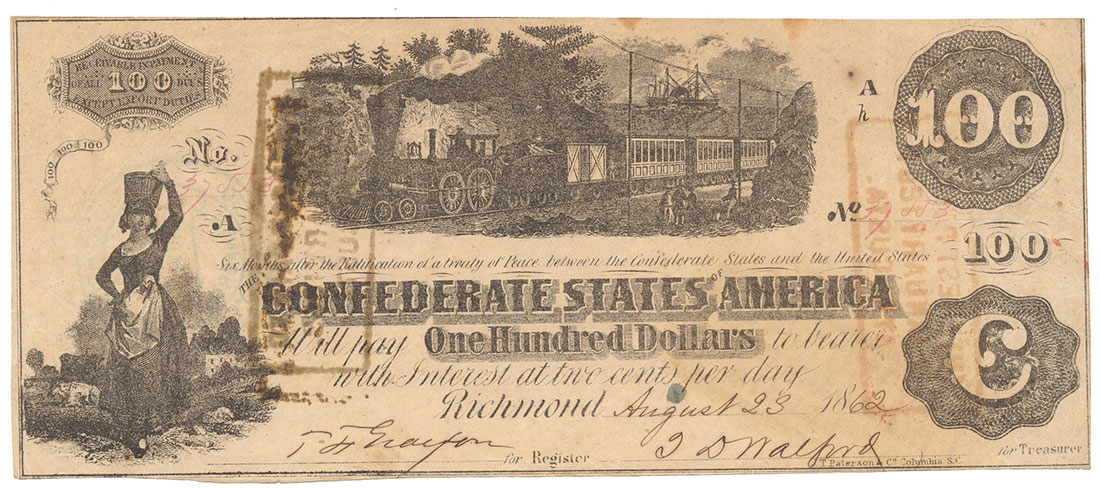 RECEIVABLE IN PAYMENT
OF ALL 100 DUES
EXCEPT EXPORT DUTIES
100 FOOL 100
No.
A
A
h
100
No
100
Six Months after the Ratification of a treaty of Peace between the Confederate States and the United States
THE
CONFEDERATE STATES OF AMERICA
Will pay One Hundred Dollars to bearer
with Interest at two cents per day
Richmond August 23 1862
C
for Register
J D Walford
for Treasurer
T. Paterson & Co. Columbia S.C.